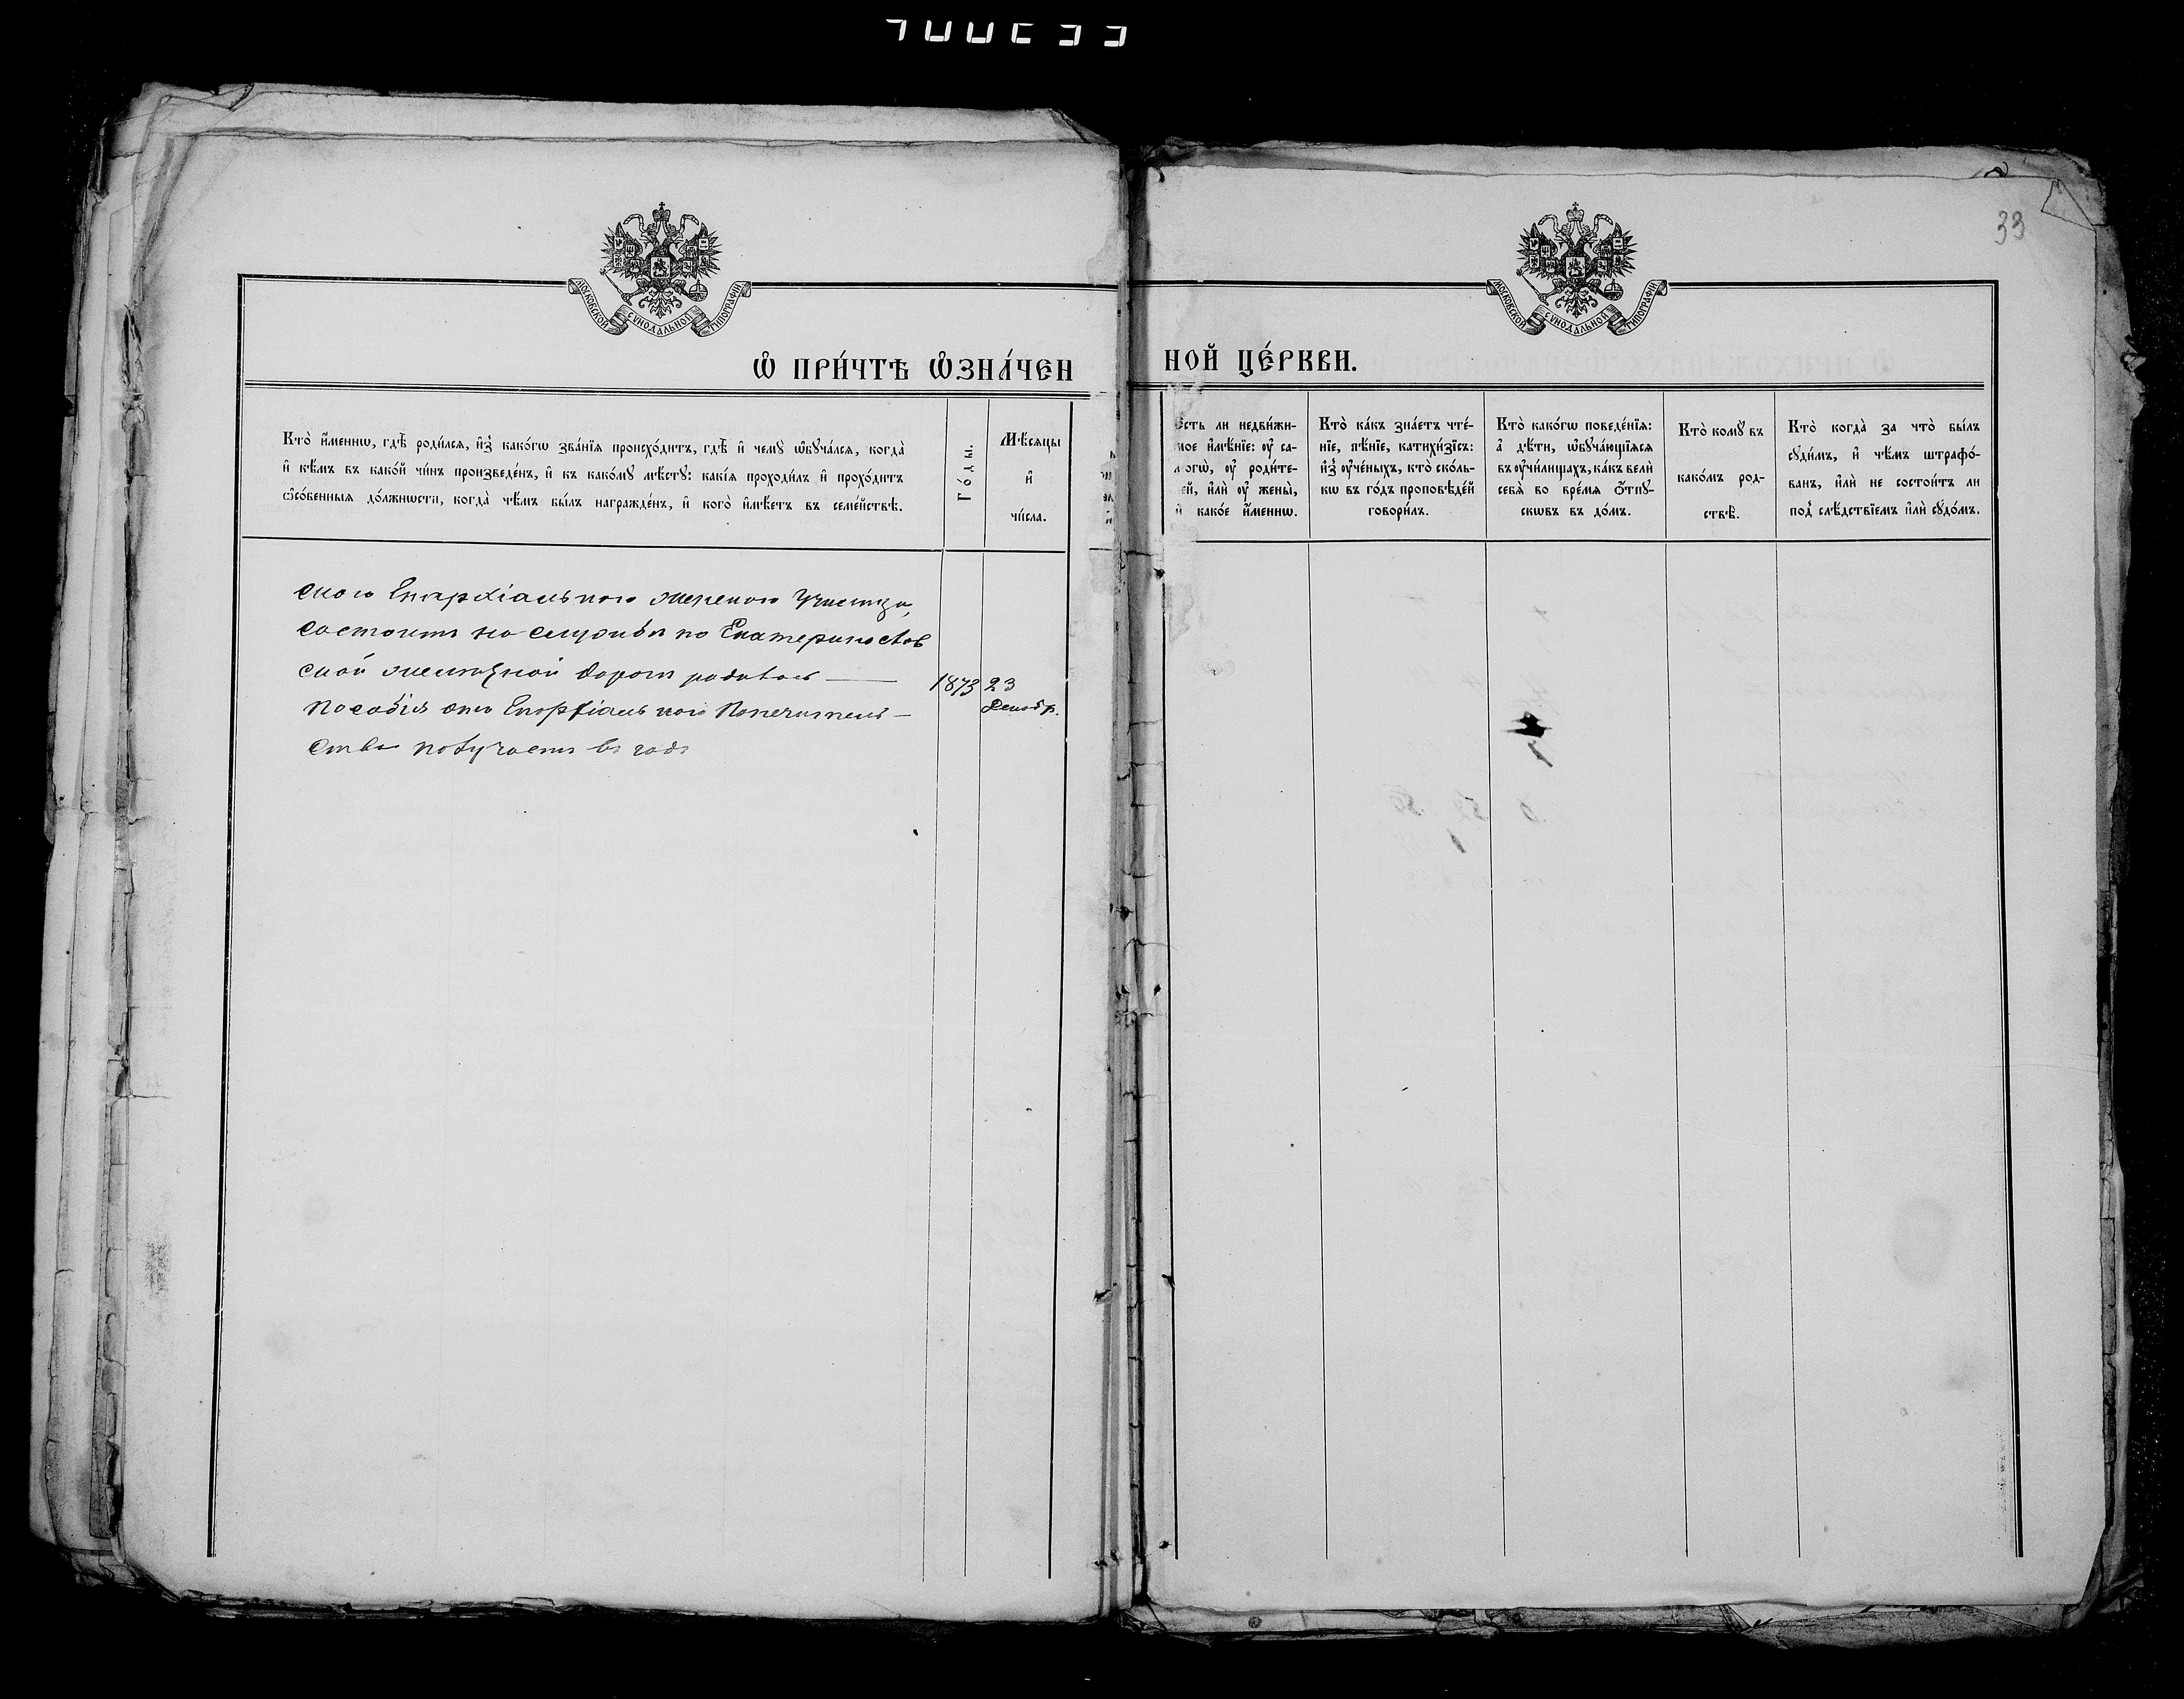 33
МОСКОВСКОЙ СѴНОДАЛЬНОЙ ТИПОГРАФІИ
МОСКОВСКОЙ СѴНОДАЛЬНОЙ ТИПОГРАФІИ
Ѡ҆ ПРИ́ЧТѢ Ѡ҆ЗНА́ЧЕН
НОЙ ЦЕ́РКВИ.
Кто̀ и҆́меннѡ, гдѣ̀ роди́лсѧ, и҆з̾ како́гѡ зва́нїѧ происхо́дитъ, гдѣ̀ и҆ чемꙋ̀ ѡ҆бꙋча́лсѧ, когда̀
и҆ кѣ́мъ въ како́й чи́нъ произведе́нъ, и҆ къ како́мꙋ мѣ́стꙋ: какі́ѧ проходи́лъ и҆ прохо́дитъ
ѡ҆со́бенныѧ до́лжнѡсти, когда̀ чѣ́мъ бы́лъ награжде́нъ, и҆ кого̀ и҆мѣ́етъ въ семе́йствѣ.
Го́ды.
Мѣ́сѧцы
и҆
чи́сла.
Є҆сть ли недви́жи-
мое и҆мѣ́нїе: ᲂу҆ са-
могѡ̀, ᲂу҆ роди́те-
лей, и҆лѝ ᲂу҆ жены̀,
и҆ како́е и҆́меннѡ.
Кто̀ ка́къ зна́етъ чте́-
нїе, пѣ́нїе, катихи́зїсъ:
и҆з̾ ᲂу҆че́ныхъ, кто̀ ско́ль-
кѡ въ го́дъ проповѣ́дей
говори́лъ.
Кто̀ како́гѡ поведе́нїѧ:
а҆ дѣ́ти, ѡ҆бꙋча́ющїѧсѧ
въ ᲂу҆чи́лищахъ, ка́къ велѝ
себѧ̀ во вре́мѧ ѿпꙋ-
скѡвъ въ до́мъ.
Кто̀ комꙋ̀ въ
како́мъ род-
ствѣ̀.
Кто̀ когда̀ за что̀ бы́лъ
сꙋди́мъ, и҆ чѣ́мъ штрафо́-
ванъ, и҆лѝ не состои́тъ ли
под̾ слѣ́дствїемъ и҆лѝ сꙋдо́мъ.
скаго Епархіальнаго женскаго Училища,
состоитъ на службѣ по Екатеринослав
ской желѣзной дорогѣ родилась —
1873 23
Декабр.
Пособія отъ Епархіальнаго Попечитель—
ства получаетъ въ годъ